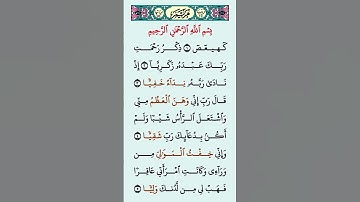 بِسْمِ ٱللَّهِ ٱلرَّحْمَٰنِ ٱلرَّحِيمِ
كٓهيعٓصٓ ۝ ذِكْرُ رَحْمَتِ
رَبِّكَ عَبْدَهُۥ زَكَرِيَّآ ۝ إِذْ
نَادَىٰ رَبَّهُۥ نِدَآءً خَفِيًّا ۝
قَالَ رَبِّ إِنِّى وَهَنَ ٱلْعَظْمُ مِنِّى
وَٱشْتَعَلَ ٱلرَّأْسُ شَيْبًا وَلَمْ
أَكُنۢ بِدُعَآئِكَ رَبِّ شَقِيًّا ۝
وَإِنِّى خِفْتُ ٱلْمَوَٰلِىَ مِن
وَرَآءِى وَكَانَتِ ٱمْرَأَتِى عَاقِرًا
فَهَبْ لِى مِن لَّدُنكَ وَلِيًّا ۝